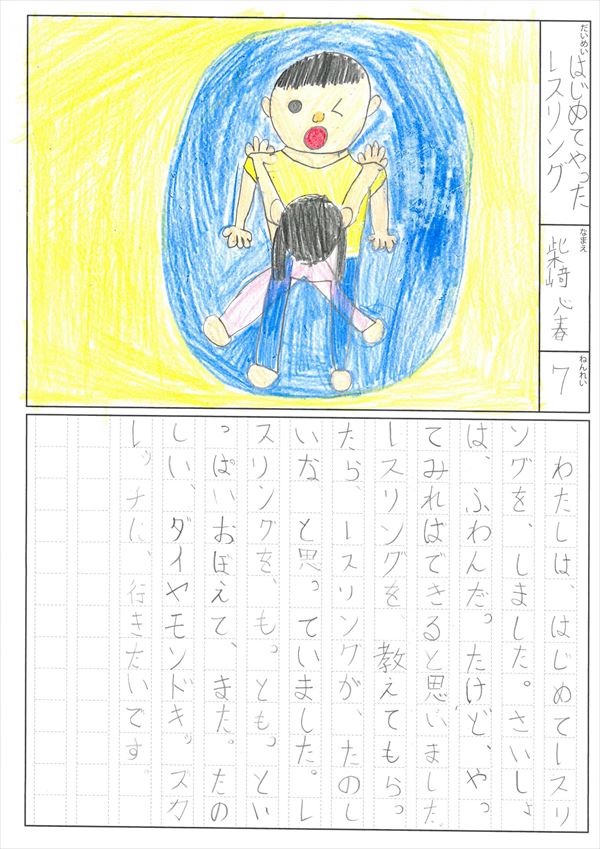 だいめい
はじめてやった
レスリング
なまえ
柴﨑 心春
ねんれい
7
わたしは、はじめてレスリ
ングを、しました。さいしょ
は、ふわんだったけど、やっ
てみればできると思いました。
レスリングを、教えてもらっ
たら、レスリングが、たのし
いな と思っていました。レ
スリングを、もっともっとい
っぱいおぼえて、また。たの
しい、ダイヤモンドキッズカ
レッチに、行きたいです。